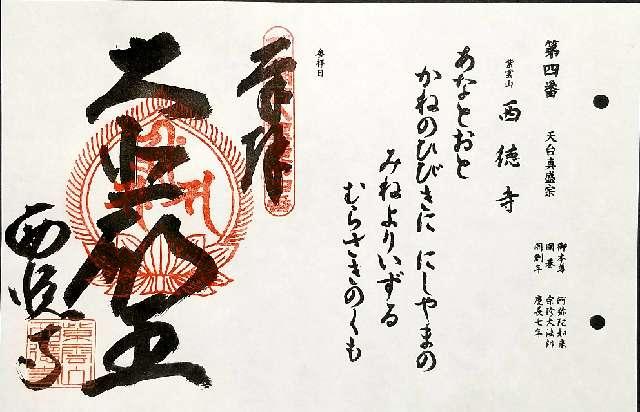 第四番　天台真盛宗
御本尊　阿弥陀如来
開基　宗珍大法師
開創年　慶長七年
紫雲山　西徳寺
あなとおと
かねのひびきに　にしやまの
みねよりいずる
むらさきのくも
参拝日
奉拝
大願王
西徳寺